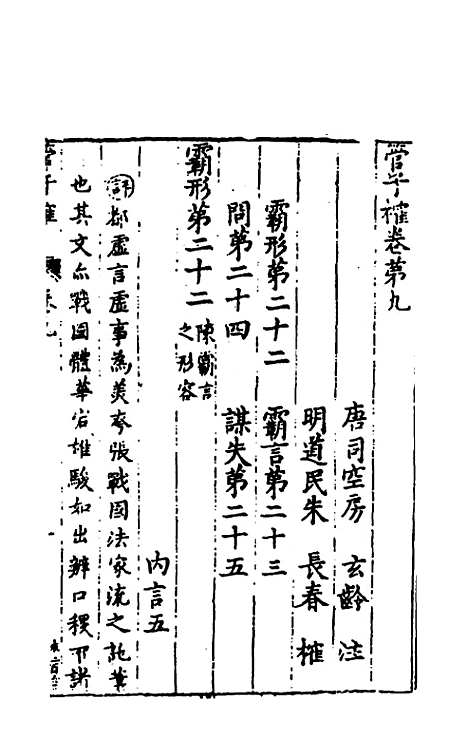 管子榷卷第九
唐司空房 玄齡 注
明道民朱 長春 榷
霸形第二十二 霸言第二十三
問第二十四 謀失第二十五
霸形第二十二 陳霸言之形容
內言五
評都虛言虛事為美夸張戰國法家流之託筆
也其文亦戰國體華宕雄駿如出辨口稷下諸
管子榷 卷九 一